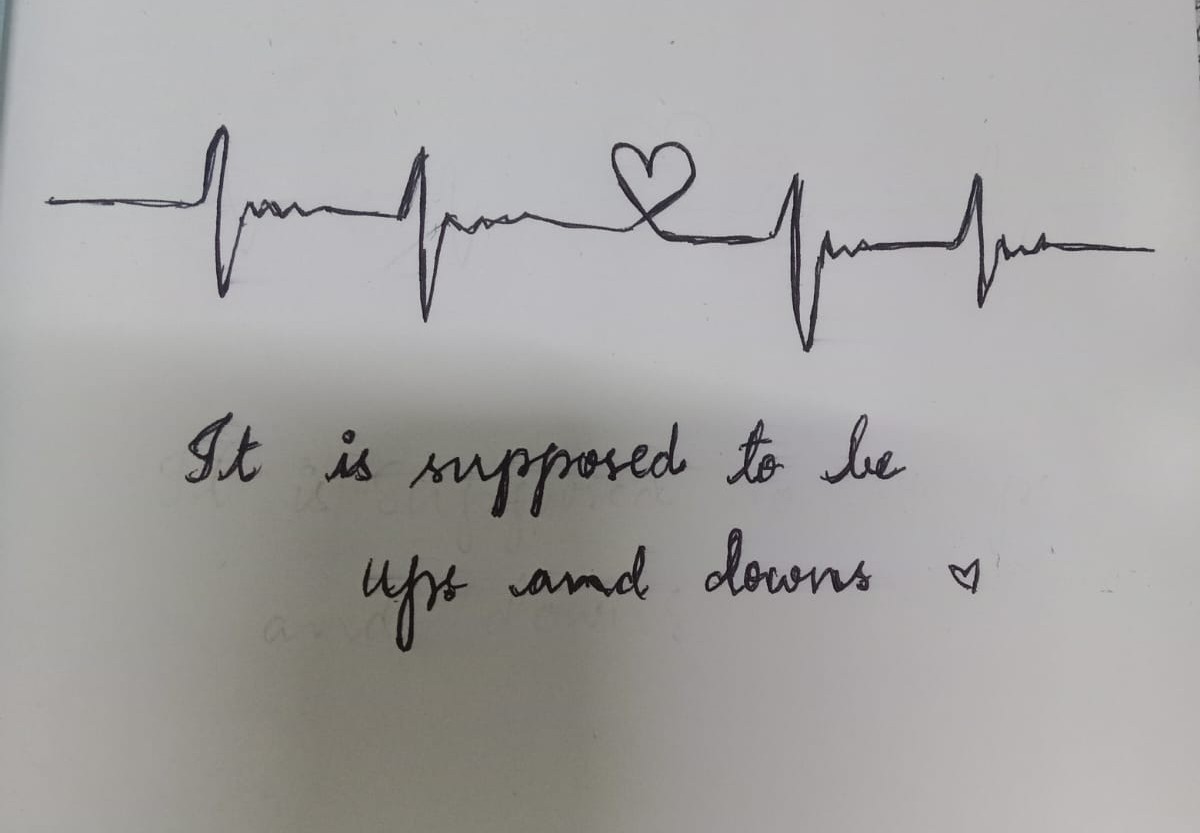 It is supposed to be
ups and downs ♡